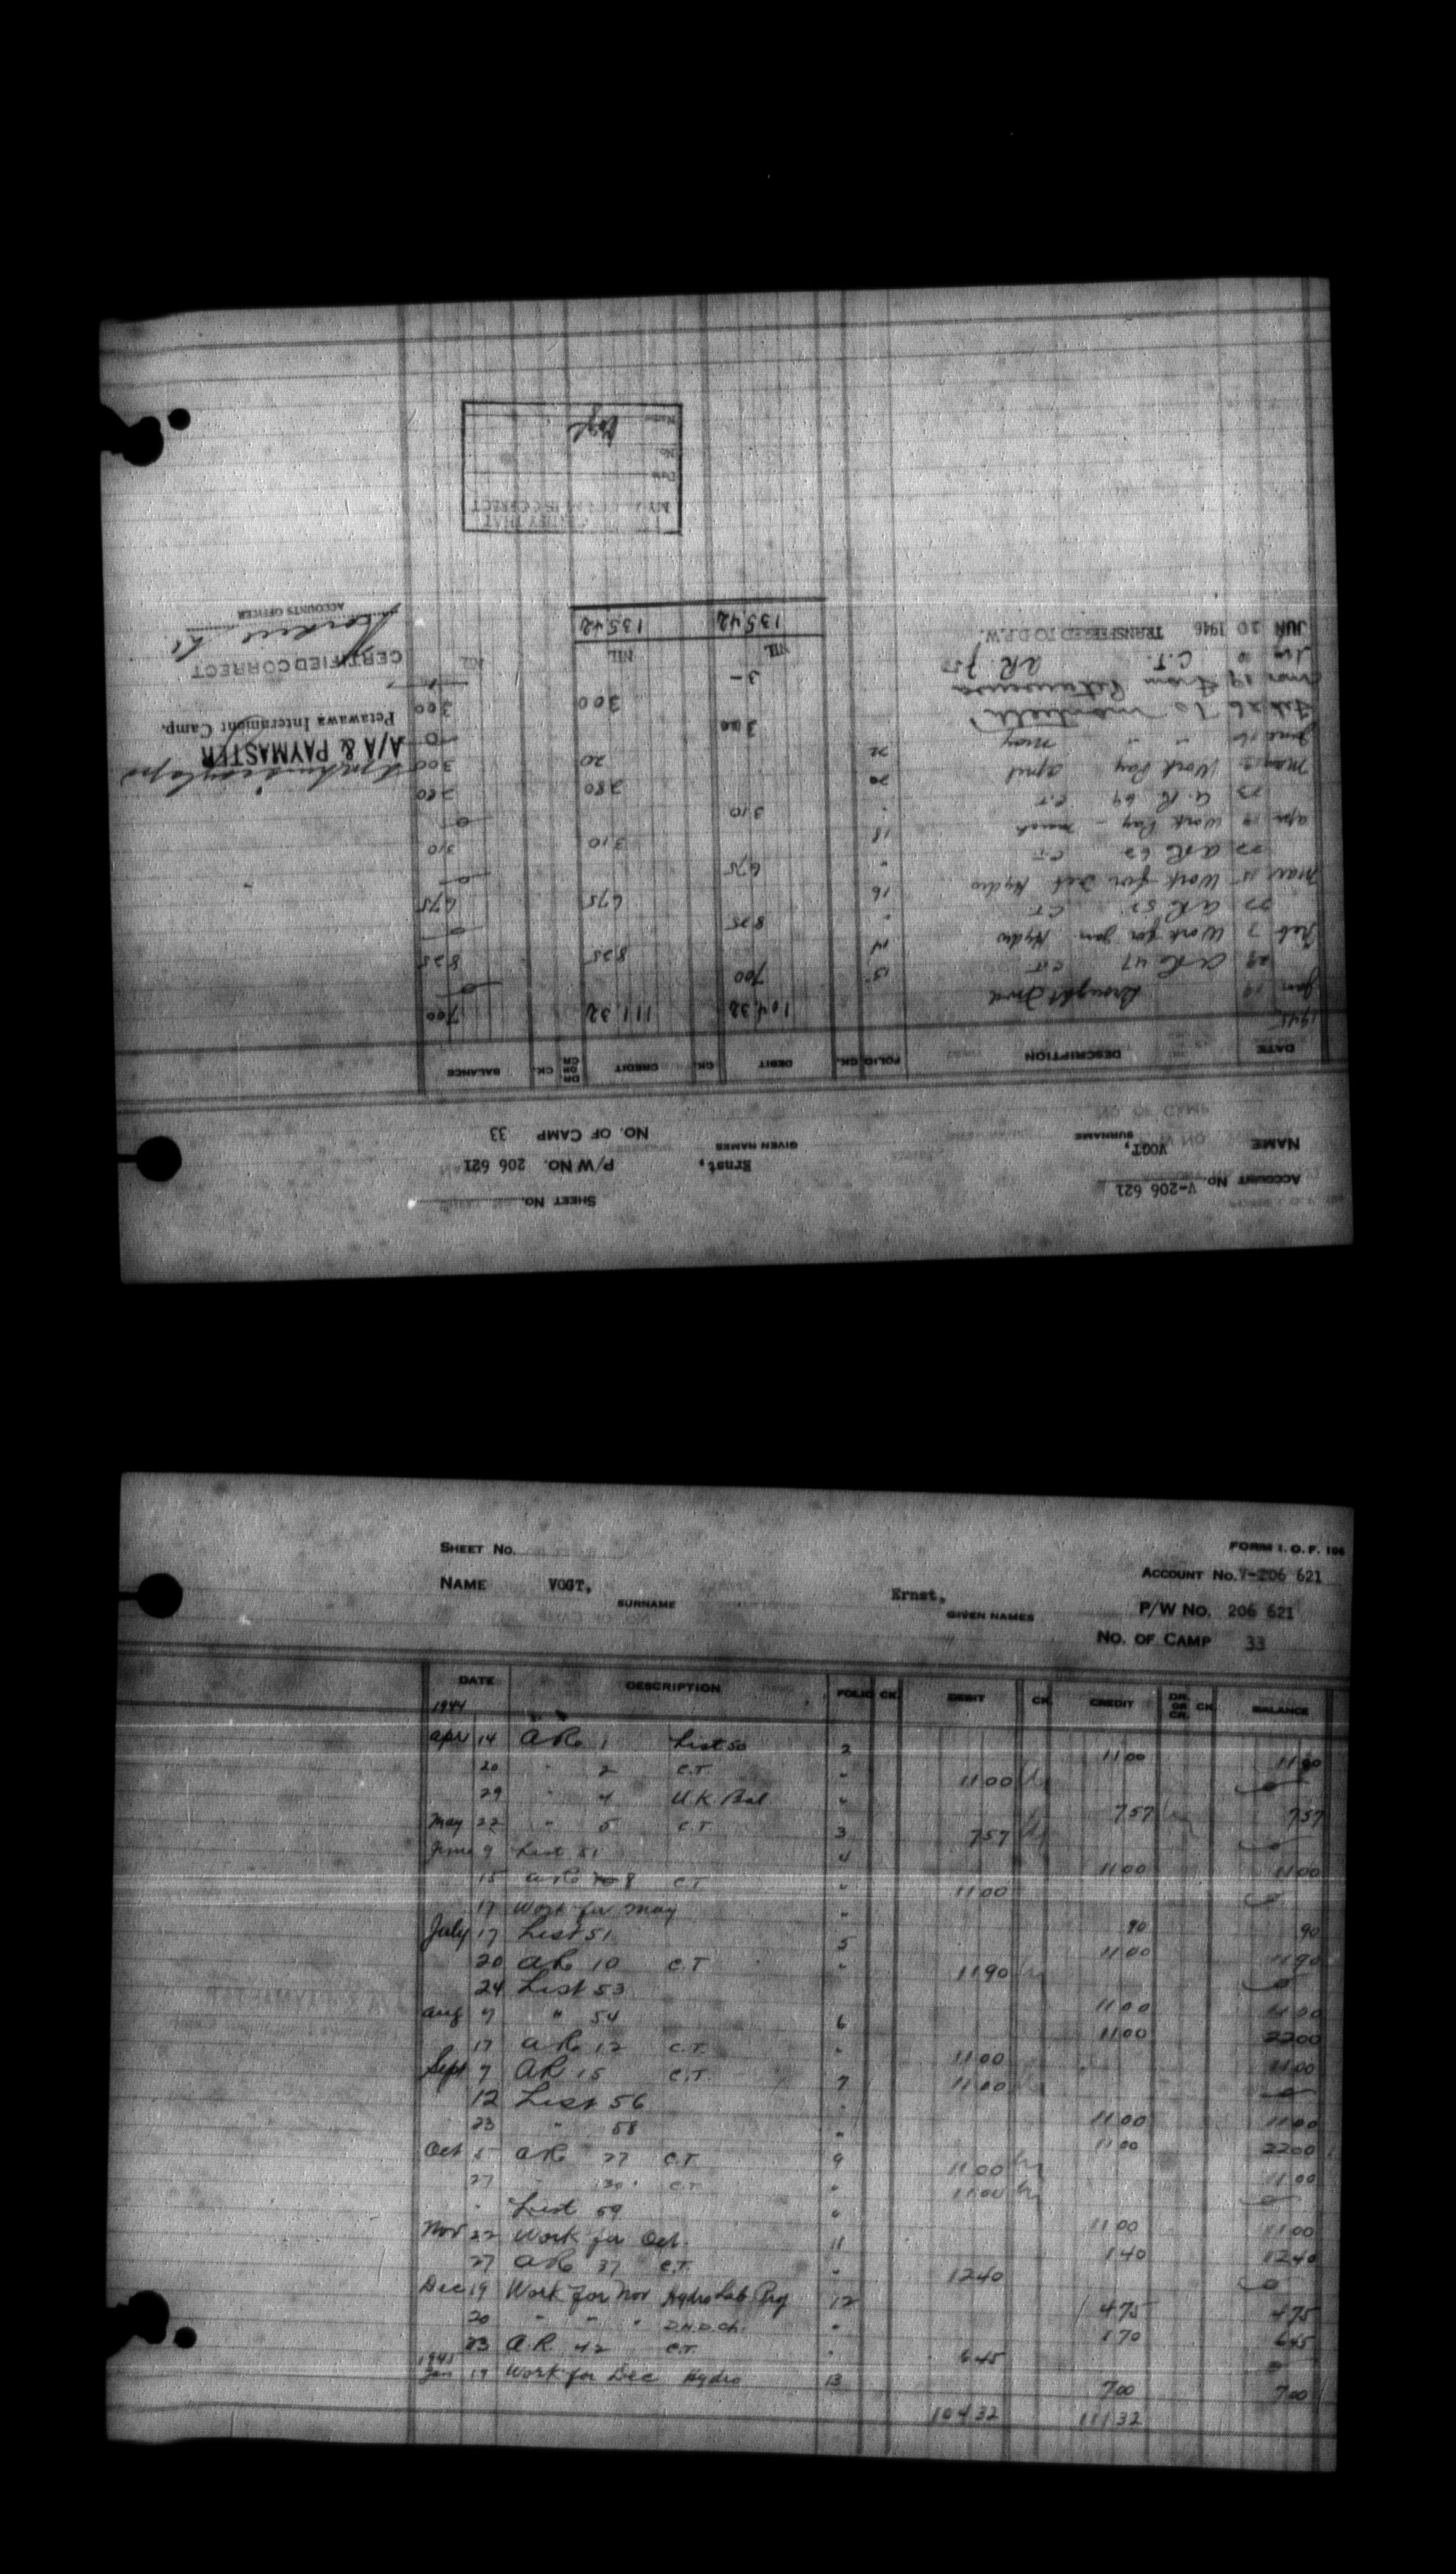 SHEET No.
FORM I. O. F. 166
ACCOUNT No. V-206 621
NAME VOGT, Ernst,
SURNAME GIVEN NAMES
P/W No. 206 621
No. OF CAMP 33
DATE DESCRIPTION FOLIO CK. DEBIT CK. CREDIT DR. OR CR. CK. BALANCE
1944
Apr 14 AR 1 List 50 2 11 00 11 00
20 " 2 C.T. " 11 00 0
29 " 4 U.K. Bal " 7 57 7 57
May 22 " 5 C.T. 3 7 57 0
June 9 List 51 4 11 00 11 00
15 AR 8 C.T. " 11 00 0
17 Work for May " 90 90
July 17 List 51 5 11 00 11 90
20 AR 10 C.T " 11 90 0
24 List 53 11 00 11 00
Aug 7 " 54 6 11 00 22 00
17 AR 12 C.T. " 11 00 11 00
Sept 7 AR 15 C.T. 7 11 00 0
12 List 56 " 11 00 11 00
23 " 58 " 11 00 22 00
Oct 5 AR 27 C.T. 9 11 00 11 00
27 " 30 C.T. " 11 00 0
" List 59 " 11 00 11 00
Nov 22 Work for Oct. 11 1 40 12 40
27 AR 37 C.T. " 12 40 0
Dec 19 Work for Nov Hydro Lab Proj 12 4 75 4 75
20 " " " D.N.D. Ch. " 1 70 6 45
23 A.R. 42 C.T. " 6 45 0
1945
Jan 19 Work for Dec Hydro 13 7 00 7 00
104 32 111 32
ACCOUNT No. V-206 621
SHEET No.
NAME VOGT, Ernst, P/W No. 206 621
SURNAME GIVEN NAMES
NO. OF CAMP 33
DATE DESCRIPTION FOLIO CK. DEBIT CK. CREDIT DR OR CR CK. BALANCE
1945
Jan 19 Brought Fwd 104 32 111 32 7 00
29 AR 47 C.T 13 7 00 0
Feb 7 Work for Jan Hydro 14 8 25 8 25
22 AR 52 C.T " 8 25 0
Mar 15 Work for Feb Hydro 16 6 75 6 75
22 AR 62 C.T " 6 75 0
Apr 19 Work Pay - March 18 3 10 3 10
23 A.R. 69 C.T " 3 10 0
May Work Pay April 20 2 80 2 80
June 16 " " May 22 20 3 00
3 00 0
Feb 26 To Monteith 3 00 3 00
Mar 19 From Petawawa
C.T. AR 75 3 -
JUN 20 1946 TRANSFERRED TO D.P.W. NIL NIL NIL
135.42 135.42
A/A & PAYMASTER
Petawawa Internment Camp.
CERTIFIED CORRECT
ACCOUNTS OFFICER
CERTIFY THAT
MY CORRECT
Date
No.
Name Vogt